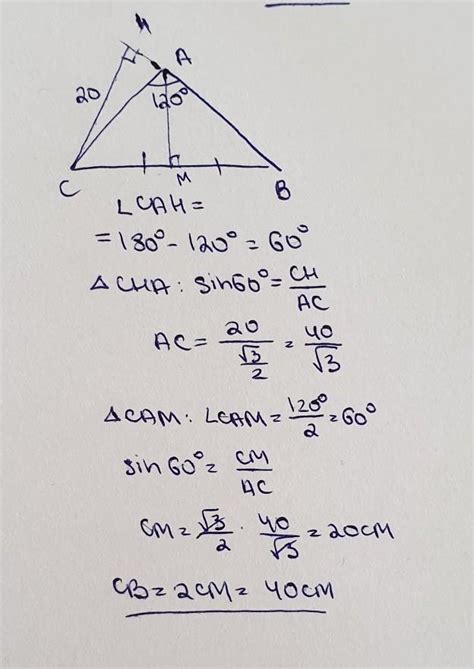 H
A
20
120°
C
M
B
∠CAH =
= 180° - 120° = 60°
△CHA: sin60° = CH/AC
AC = 20/(√3/2) = 40/√3
△CAM: ∠CAM = 120°/2 = 60°
sin 60° = CM/AC
CM = √3/2 · 40/√3 = 20CM
CB = 2CM = 40CM